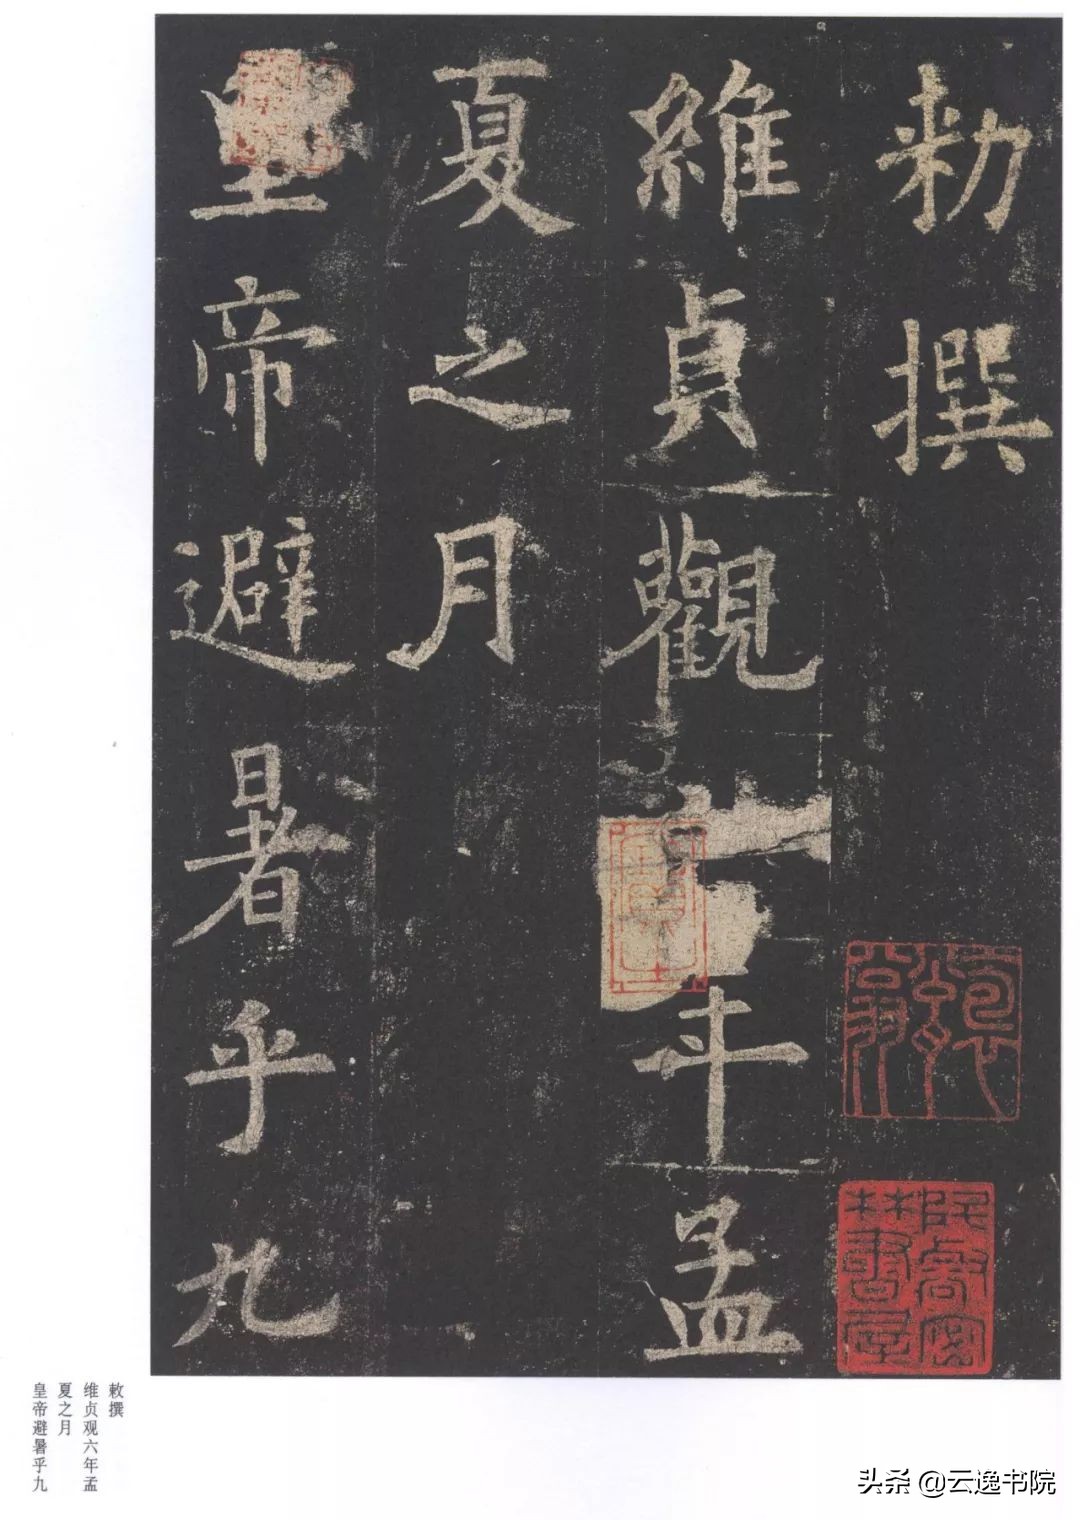 勑撰
維貞觀六年孟
夏之月
皇帝避暑乎九
敕撰
维贞观六年孟
夏之月
皇帝避暑乎九
头条 @云逸书院